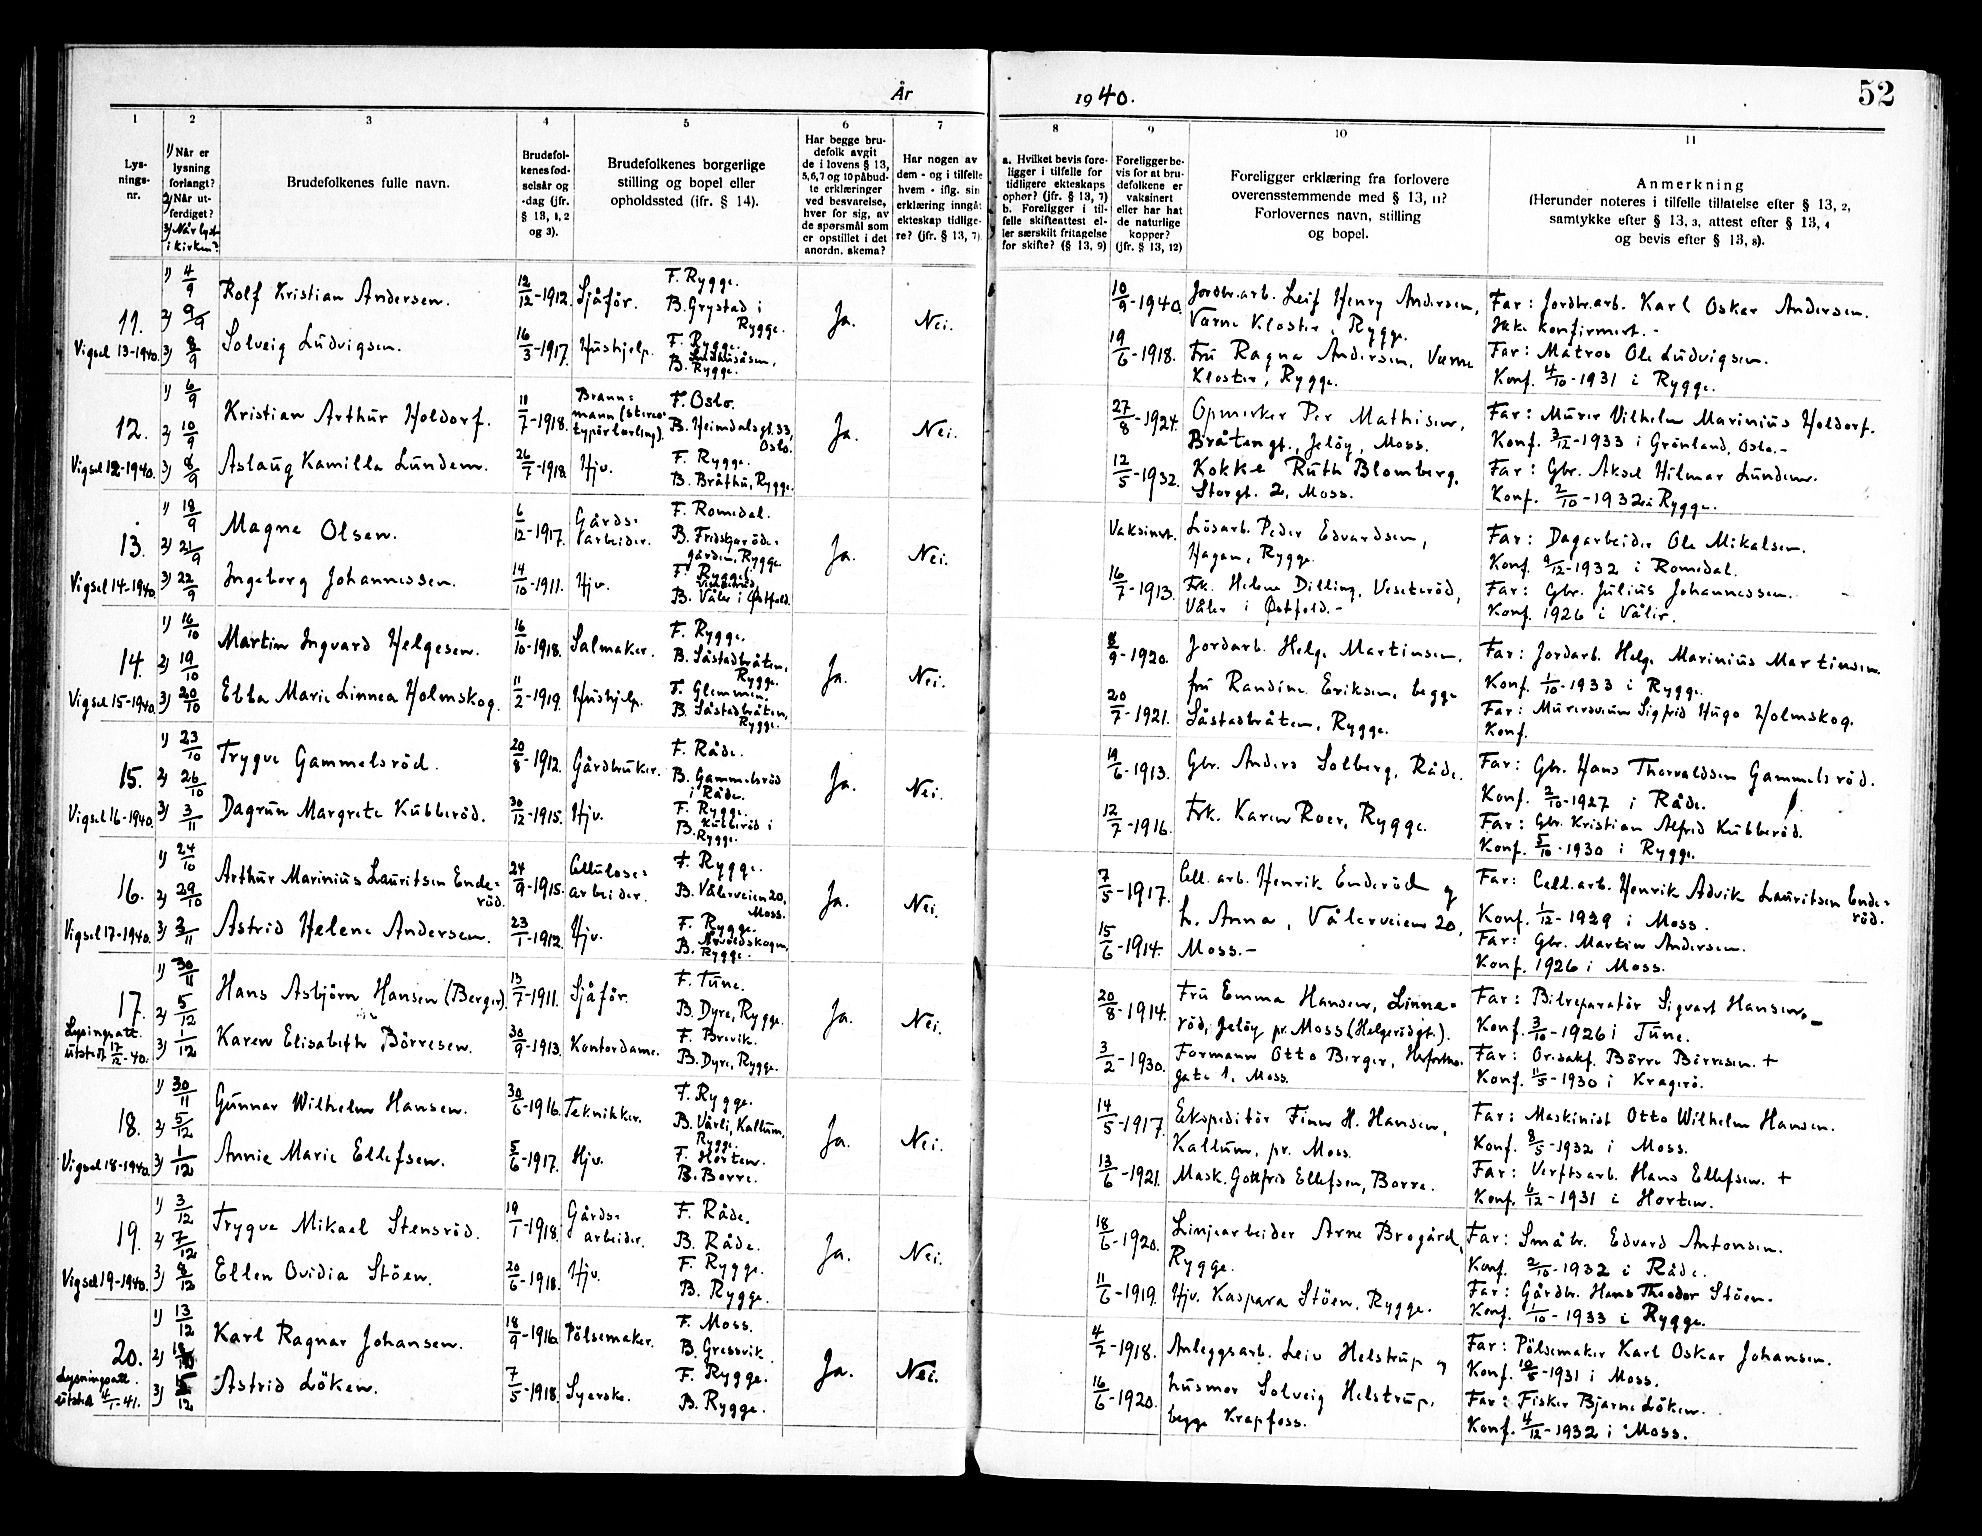 År
1940.
52
1
2
3
4
5
6
7
8
9
10
11
Lys-
nings-
nr.
1) Når er
lysning
forlangt?
2) Når ut-
ferdiget?
3) Når lyst
i kirken?
Brudefolkenes fulle navn.
Brudefol-
kenes fød-
selsår og
-dag (jfr.
§ 13, 1, 2
og 3).
Brudefolkenes borgerlige
stilling og bopel eller
opholdssted (ifr. § 14).
Har begge bru-
defolk avgit
de i lovens § 13,
5, 6, 7 og 10 påbud-
te erklæringer
ved besvarelse,
hver for sig, av
de spørsmål som
er opstillet i det
anordn. skema?
Har nogen av
dem - og i tilfelle
hvem - iflg. sin
erklæring inngåt
ekteskap tidlige-
re? (jfr. § 13, 7)
a. Hvilket bevis fore-
ligger i tilfelle for
tidligere ekteskaps
ophør? (jfr. § 13, 7)
b. Foreligger i til-
felle skifteattest el-
ler særskilt fritagelse
for skifte? (§ 13, 9)
Foreligger be-
vis for at bru-
defolkene er
vaksinert
eller har hat
de naturlige
kopper?
(jfr. § 13, 12)
Foreligger erklæring fra forlovere
overensstemmende med § 13, 11?
Forlovernes navn, stilling
og bopel.
Anmerkning
(Herunder noteres i tilfelle tillatelse efter § 13, 2,
samtykke efter § 13, 3, attest efter § 13, 4
og bevis efter § 13, 8).
11.
Vigsel 13-1940.
1) 4/9
2) 9/9
3) 8/9
Rolf Kristian Andersen.
Solveig Ludvigsen.
12/12-1912.
16/3-1917.
Sjåfør.
F. Rygge.
B. Grystad i
Rygge.
Hushjelp.
F. Rygge.
Rygge.
Ja.
Nei.
10/9-1940.
19/6-1918.
Jordbr.arb. Leif Henry Andersen,
Værne Kloster, Rygge.
Fru Ragna Andersen, Værne
Kloster, Rygge.
Far: Jordbr.arb. Karl Oskar Andersen.
Ikke konfirmert.-
Far: Matros Ole Ludvigsen.
Konf. 4/10-1931 i Rygge.
12.
Vigsel 12-1940.
1) 6/9
2) 10/9
3) 8/9
Kristian Arthur Holdorf.
Aslaug Kamilla Lundem.
11/7-1918.
26/7-1918.
Brann=
mann (stereo=
typørlærling).
F. Oslo.
B. Heimdalsgt. 33,
Oslo.
Hjv.
F. Rygge.
B. Bråthu, Rygge.
Ja.
Nei.
27/8-1924.
12/5-1932.
Opmerker Per Mathisen,
Bråtengt., Jeløy, Moss.
Kokke Ruth Blomberg,
Storgt. 2, Moss.
Far: Murer Vilhelm Marinius Holdorf.
Konf. 3/12-1933 i Grønland, Oslo.-
Far: Gbr. Aksel Hilmar Lundem.
Konf. 2/10-1932 i Rygge.
13.
Vigsel 14-1940
1) 18/9
2) 21/9
3) 22/9
Magne Olsen.
Ingeborg Johannessen.
6/12-1917.
14/10-1911.
Gårds=
arbeider.
F. Romedal.
gården, Rygge
Hjv.
F. Rygge
B. Våler i Østfold.
Ja.
Nei.
Vaksinert.
16/7-1913.
Løsarb. Peder Edvardsen,
Hagen, Rygge.
Frk. Helene Dilling, Veseterød,
Våler i Østfold.-
Far: Dagarbeider Ole Mikalsen.
Konf. 2/12-1932 i Romedal.
Far: Gbr. Julius Johannessen.
Konf. 1926 i Våler.
14.
Vigsel 15-1940.
1) 16/10
2) 19/10
3) 20/10
Martin Ingvard Helgesen.
Ebba Marie Linnea Holmskog.
16/10-1918.
11/2-1919.
Salmaker.
F. Rygge.
B. Såstadbråten,
Rygge.
Hushjelp.
F. Glemmen.
B. Såstadbråten,
Rygge.
Ja.
Nei.
8/9-1920.
20/7-1921.
Jordarb. Helge Martinsen,
fru Randine Eriksen, begge
Såstadbråten, Rygge.
Far: Jordarb. Helge Marinius Martinsen.
Konf. 1/10-1933 i Rygge.
Far: Murersvenn Sigfrid Hugo Holmskog.
Konf.
15.
Vigsel 16-1940.
1) 23/10
2) 26/10
3) 3/11
Trygve Gammelsrød.
Dagrun Margrete Kubberød.
20/8-1912.
30/12-1915.
Gårdbruker.
F. Råde.
B. Gammelsrød
i Råde.
Hjv.
F. Rygge.
B. Kubberød i
Rygge.
Ja.
Nei.
19/6-1913.
12/7-1916.
Gbr. Anders Solberg, Råde.
Frk. Karen Roer, Rygge.
Far: Gbr. Hans Thorvaldsen Gammelsrød.
Konf. 2/10-1927 i Råde.
Far: Gbr. Kristian Alfred Kubberød.
Konf. 5/10-1930 i Rygge.
16.
Vigsel 17-1940.
1) 24/10
2) 29/10
3) 3/11
Arthur Marinius Lauritsen Ende=
rød.
Astrid Helene Andersen.
24/9-1915.
23/1-1912.
Cellulose=
arbeider.
F. Rygge.
B. Vålerveien 20,
Moss.
Hjv.
F. Rygge.
Rygge.
Ja.
Nei.
7/5-1917.
15/6-1914.
Cell.arb. Henrik Enderød og
h. Anna, Vålerveien 20,
Moss.-
Far: Cell.arb. Henrik Advik Lauritsen Ende=
rød.
Konf. 1/12-1929 i Moss.
Far: Gbr. Martin Andersen.
Konf. 1926 i Moss.
17.
Lysingsatt.
utstedt 17/12-40.
1) 30/11
2) 5/12
3) 1/12
Hans Asbjørn Hansen (Berger).
Karen Elisabeth Børresen.
13/7-1911.
30/9-1913.
Sjåfør.
F. Tune.
B. Dyre, Rygge.
Kontordame.
F. Brevik.
B. Dyre, Rygge.
Ja.
Nei.
20/8-1914.
3/2-1930.
Fru Emma Hansen, Linne=
rød, Jeløy pr. Moss (Helgerødgt.).
Formann Otto Berger,
gate 1, Moss.
Far: Bilreparatør Sigvart Hansen.
Konf. 3/10-1926 i Tune.
Far: Børre Børresen. +
Konf. 11/5-1930 i Kragerø.
18.
Vigsel 18-1940.
1) 30/11
2) 5/12
3) 1/12
Gunnar Wilhelm Hansen.
Annie Marie Ellefsen.
30/6-1916.
5/6-1917.
Tekniker.
F. Rygge.
B. Vårli, Kallum,
Rygge.
Hjv.
F. Horten.
B. Borre.
Ja.
Nei.
14/5-1917
13/6-1921.
Ekspeditør Finn H. Hansen,
Kallum, pr. Moss.
Mask. Gottfred Ellefsen, Borre.
Far: Maskinist Otto Wilhelm Hansen.
Konf. 8/5-1932 i Moss.
Far: Verftsarb. Hans Ellefsen. +
Konf. 6/12-1931 i Horten.
19.
Vigsel 19-1940.
1) 3/12
2) 7/12
3) 8/12
Trygve Mikael Stensrød.
Ellen Ovidia Støen.
19/1-1918.
20/6-1918.
Gårds=
arbeider.
F. Råde.
B. Råde.
Hjv.
F. Rygge.
B. Rygge.
Ja.
Nei.
18/6-1920.
11/6-1919.
Linjearbeider Arne Brogård,
Rygge.
Hjv. Kaspara Støen, Rygge.
Far: Småbr. Edvard Antonsen.
Konf. 2/10-1932 i Råde.
Far: Gårdbr. Hans Theodor Støen.
Konf. 1/10-1933 i Rygge.
20.
Lysningsatt.
utsted 4/1-41.
1) 13/12
2)
3)
Karl Ragnar Johansen.
Astrid Løken.
18/9-1916.
7/5-1918.
Pølsemaker.
F. Moss.
B. Gressvik.
Syerske.
F. Rygge.
B. Rygge.
Ja.
Nei.
4/7-1918.
16/6-1920.
Anleggsarb. Leiv Helstrup og
husmor Solveig Helstrup,
begge Krapfoss.
Far: Pølsemaker Karl Oskar Johansen.
Konf. 1931 i Moss.
Far: Fisker Bjarne Løken.
Konf. 4/12-1932 i Moss.